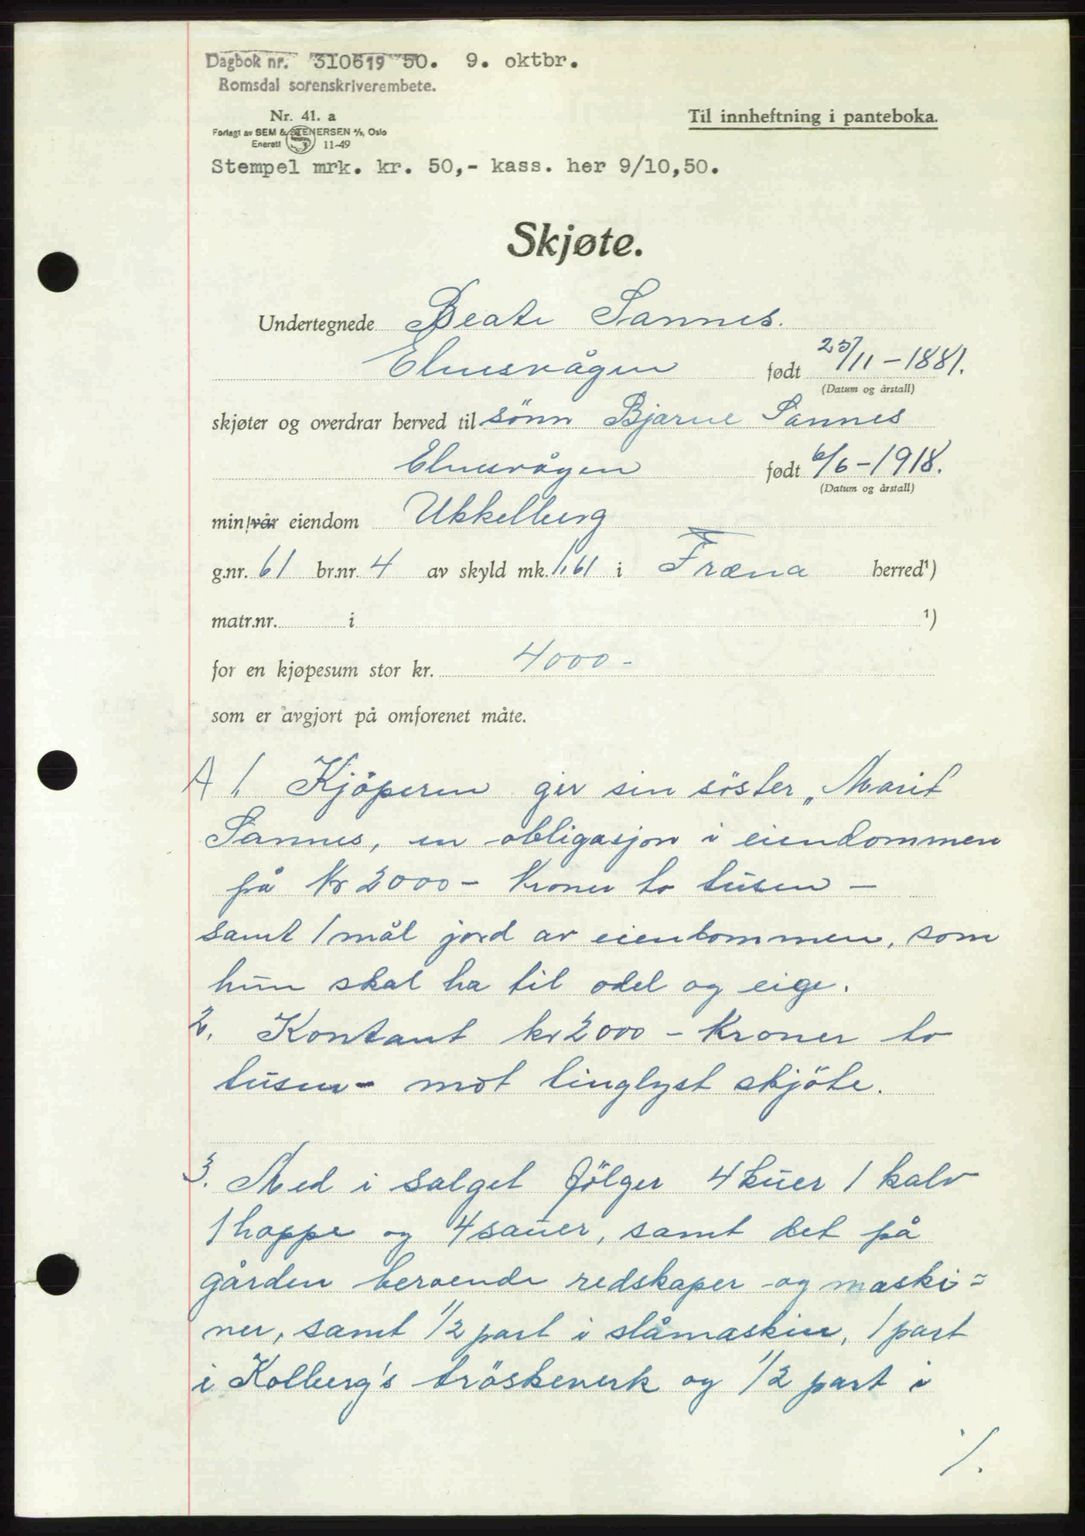 Dagbok nr. 310619 50. 9. oktbr.
Romsdal sorenskriverembete.
Nr. 41. a
Forlagt av SEM & STENERSEN A/S, Oslo
Enerett 11-49
Til innheftning i panteboka.
Stempel mrk. kr. 50,- kass. her 9/10,50.
Skjøte.
Undertegnede Beate Sannes.
Elnesvågen født 25/11-1881.
(Datum og årstall)
skjøter og overdrar herved til sønn Bjarne Sannes
Elnesvågen født 6/6-1918.
(Datum og årstall)
min/vår eiendom Ukkelberg
g.nr. 61 br.nr. 4 av skyld mk. 1,61 i Fræna herred¹)
matr.nr. i ¹)
for en kjøpesum stor kr. 4000-
som er avgjort på omforenet måte.
A 1. Kjöperen gir sin söster, Marit
Sannes, en obligasjon i eiendommen
på Kr 2000- Kroner to tusen -
samt 1 mål jord av eiendommen, som
hun skal ha til odel og eige.
2. Kontant kr 2000 - Kroner to
tusen - mot tinglyst skjöte.
3. Med i salget fölger 4 kuer 1 kalv
1 hoppe og 4 sauer, samt det på
gården beroende redskaper og maski=
ner, samt 1/2 part i slåmaskin, 1 part
i Kolberg's tröskeverk og 1/2 part i
./.